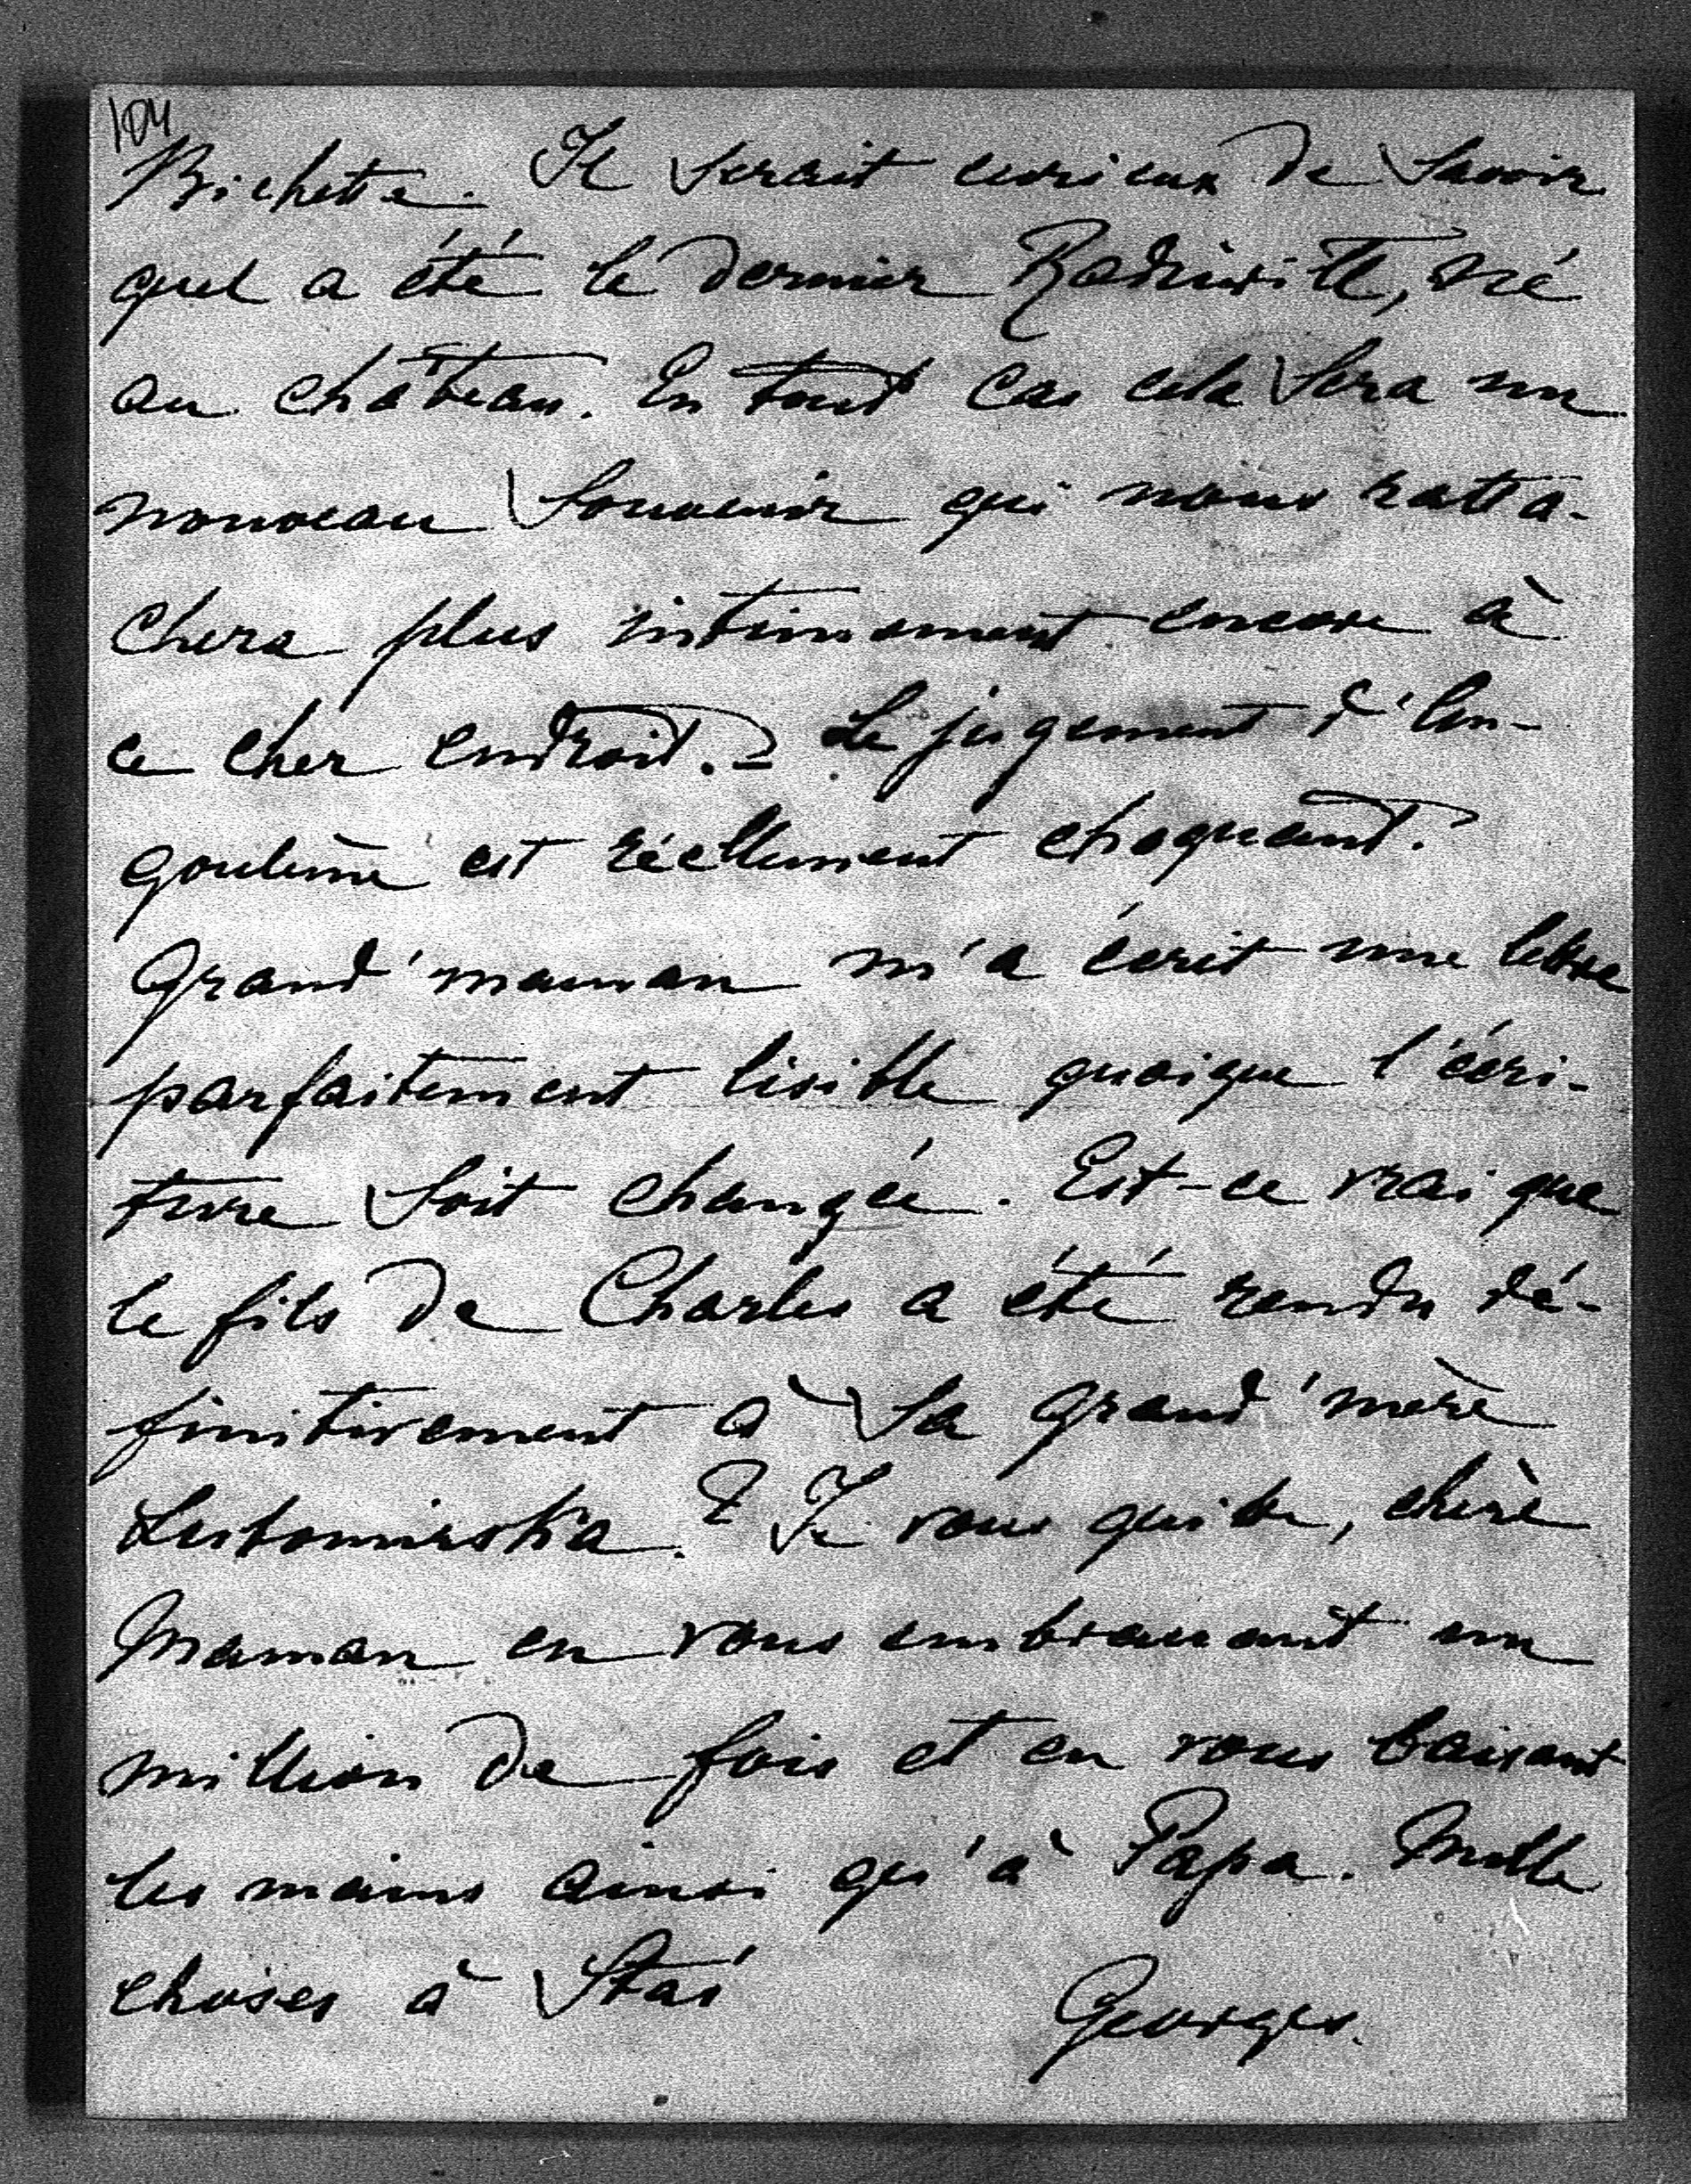 104
Bichette. Il serait curieux de savoir
quel a été le dernier Radziwill, né
au château. En tout cas cela sera un
nouveau souvenir qui nous ratta-
chera plus intimement encore à
ce cher endroit. – Le jugement d'An-
goulème est réellement choquant.
Grand'maman m'a écrit une lettre
parfaitement lisible quoique l'écri-
ture soit changée. Est-ce vrai que
le fils de Charles a été rendu dé-
finitivement à sa grand'mère
Lubomirska? Je vous quitte, chère
Maman en vous embrassant un
million de fois et en vous baisant
les mains ainsi qu'à Papa. Mille
choses à Stas
Georges.